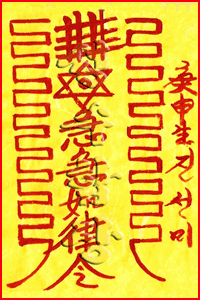 庚申生 진선미
急急如律令